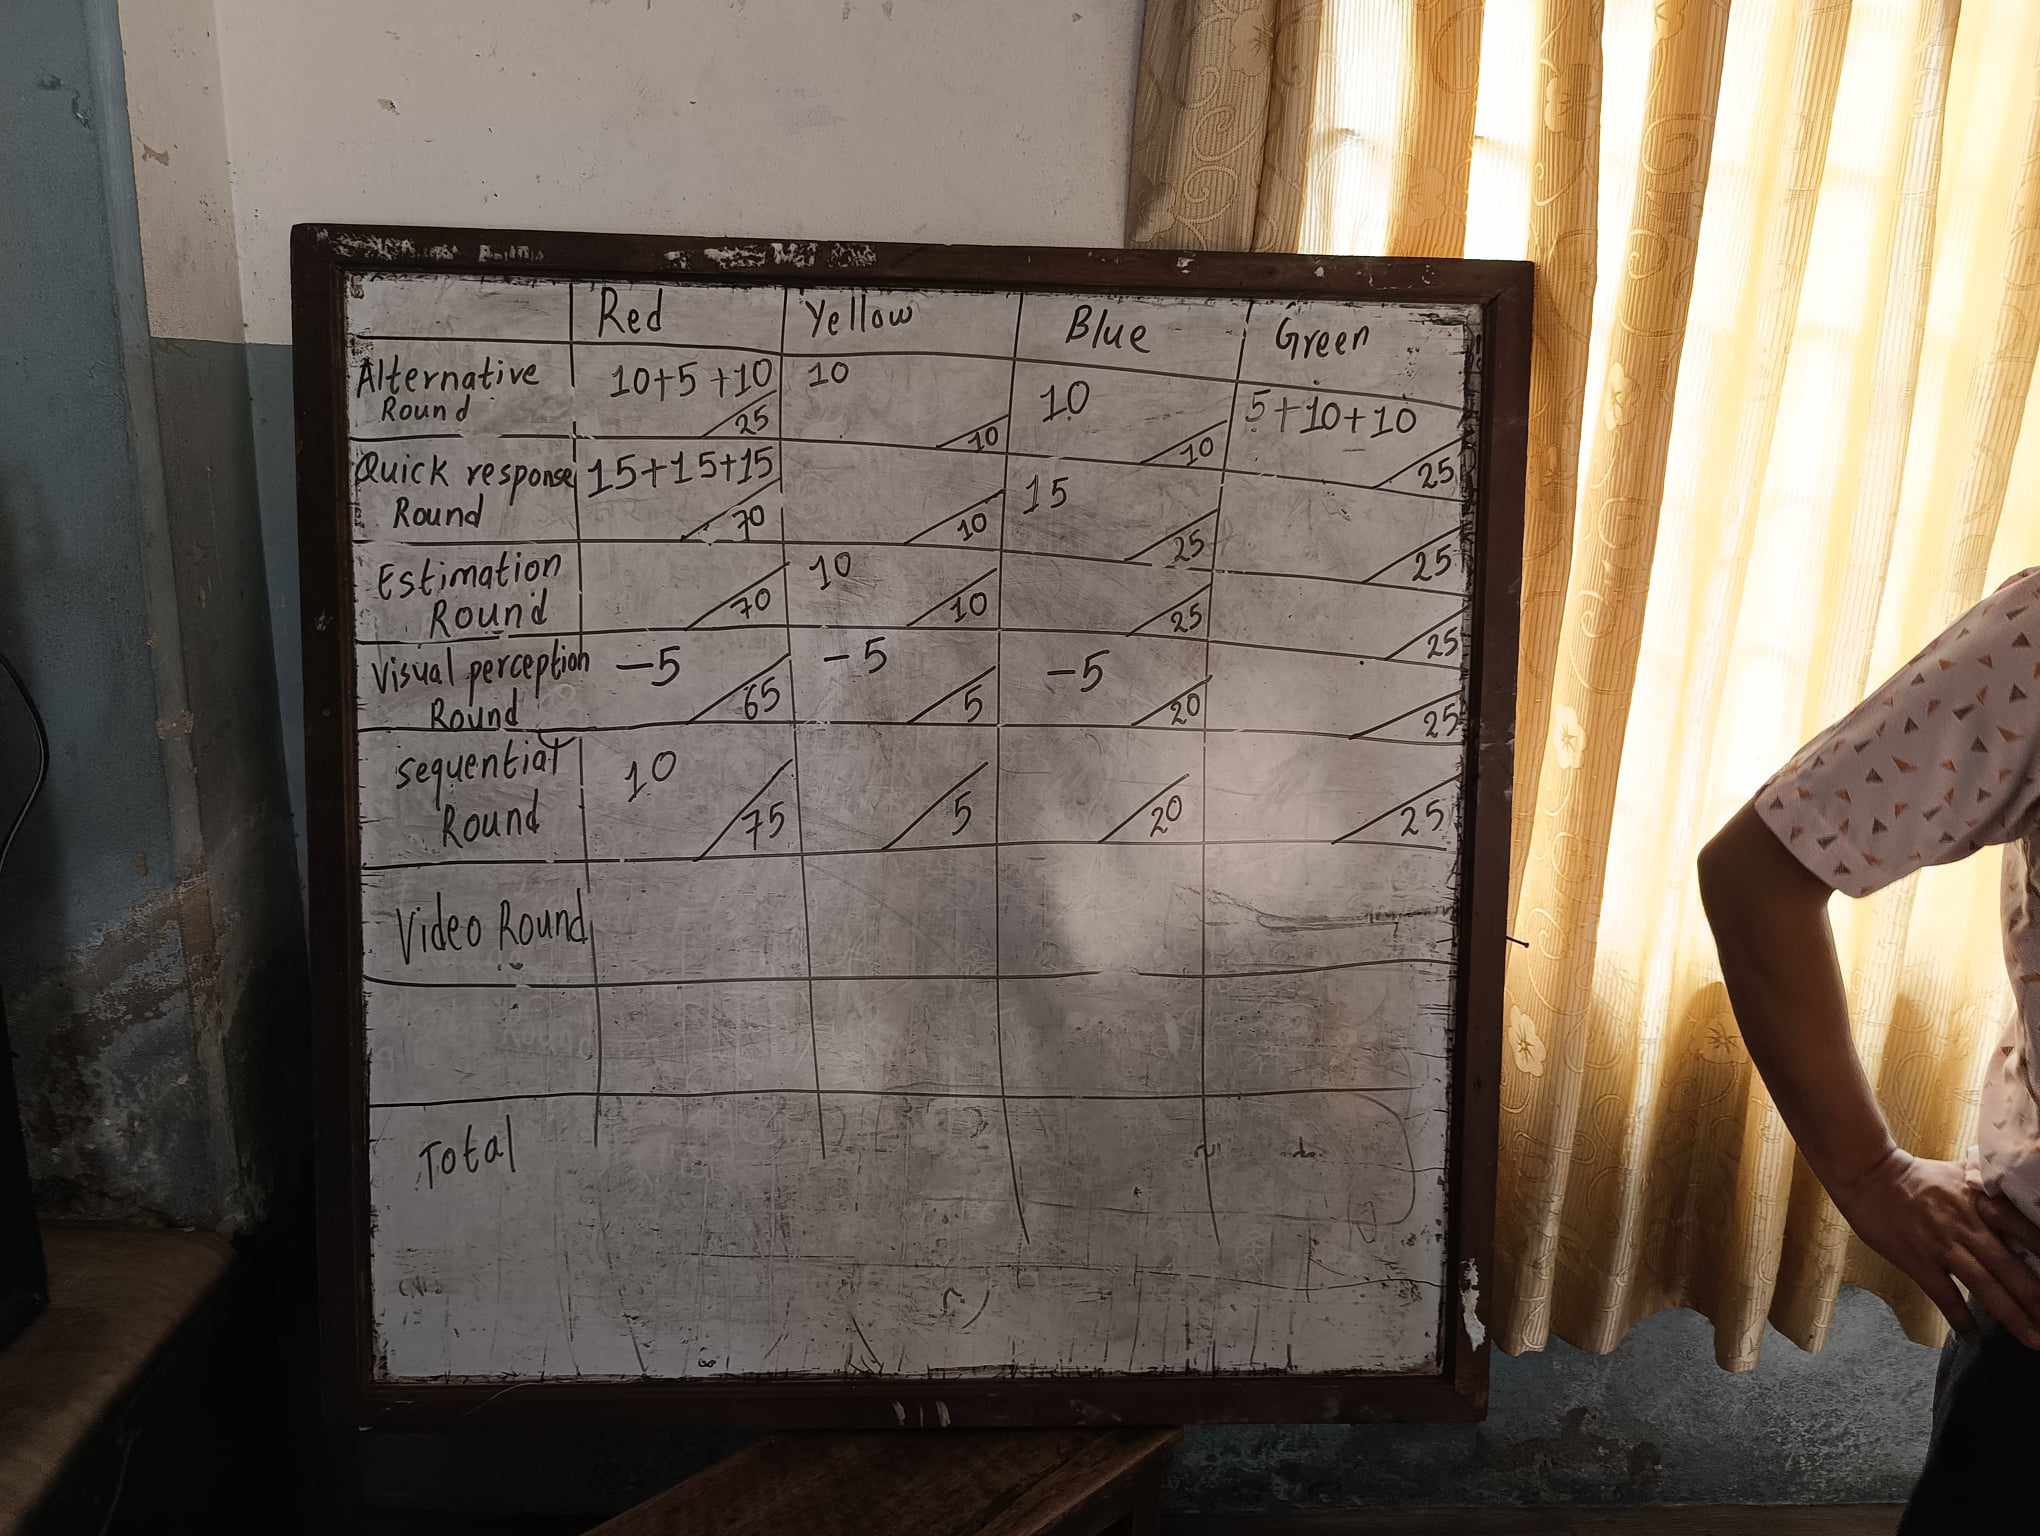 Red Yellow Blue Green
Alternative 10+5+10 10 10 5+10+10
Round 25 10 10 25
Quick response 15+15+15 15
Round 70 10 25 25
Estimation 10
Round 70 10 25 25
Visual perception -5 -5 -5
Round 65 5 20 25
sequential 10
Round 75 5 20 25
Video Round
Total